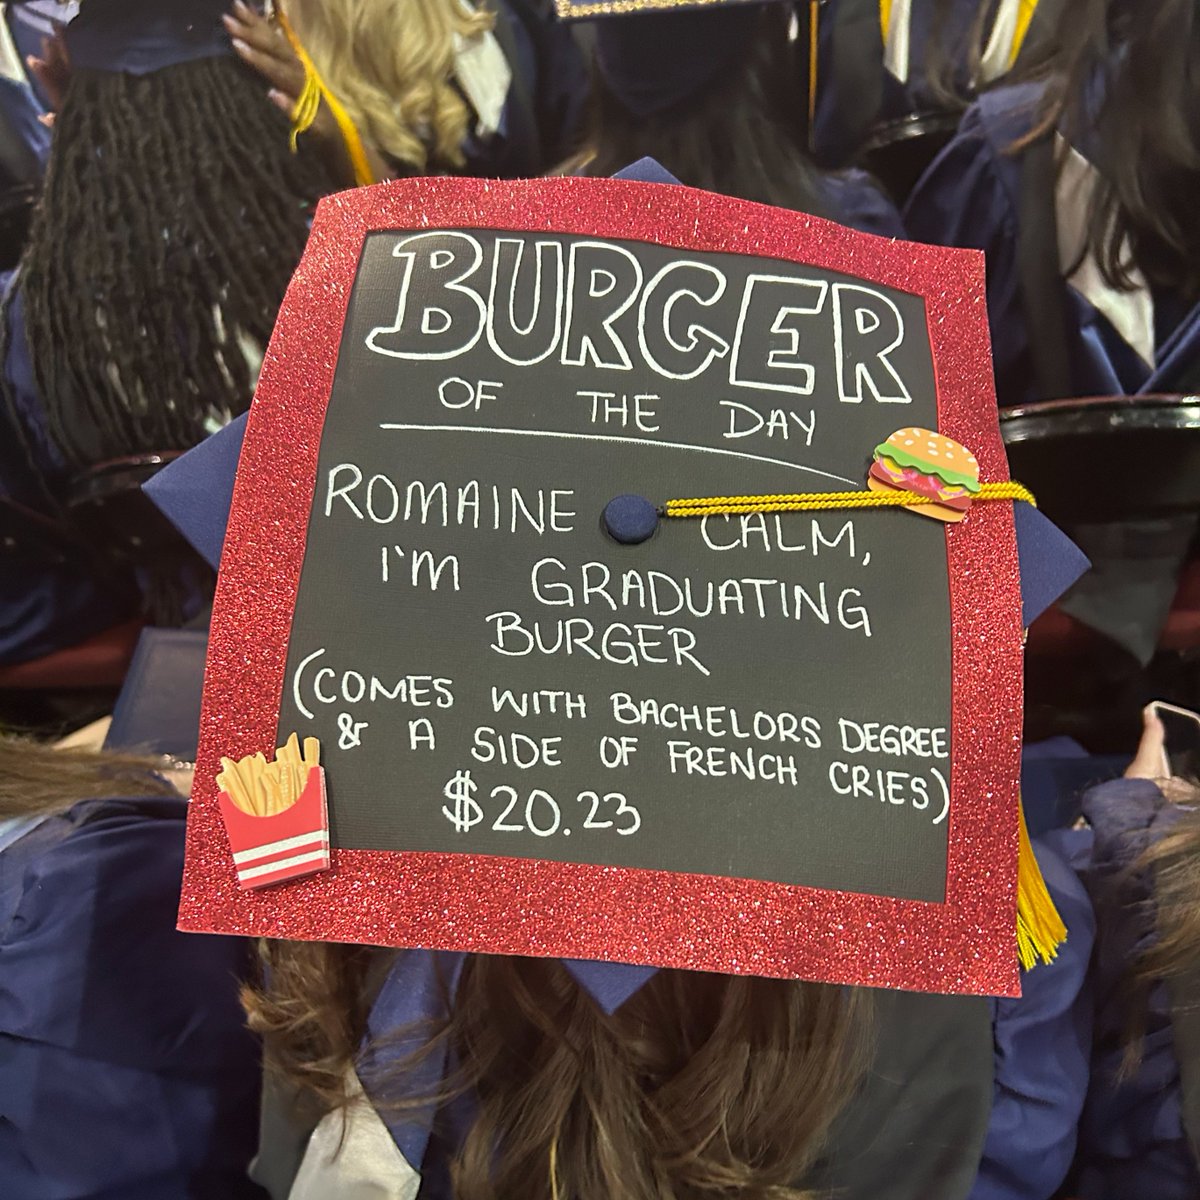 BURGER
OF THE DAY
ROMAINE CALM,
I'M GRADUATING
BURGER
(COMES WITH BACHELORS DEGREE
& A SIDE OF FRENCH CRIES)
$20.23